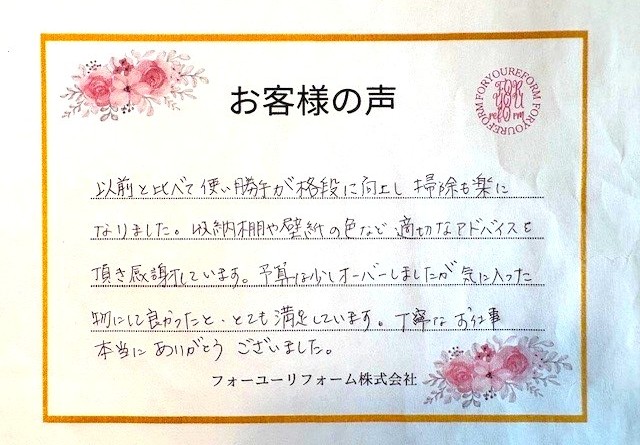 お客様の声
FORYOUREFORM FORYOUREFORM
FOR
YOU
reform
以前と比べて使い勝手が格段に向上し掃除も楽に
なりました。収納棚や壁紙の色など適切なアドバイスを
頂き感謝しています。予算は少しオーバーしましたが気に入った
物にして良かったと、とても満足しています。丁寧なお仕事
本当にありがとうございました。
フォーユーリフォーム株式会社